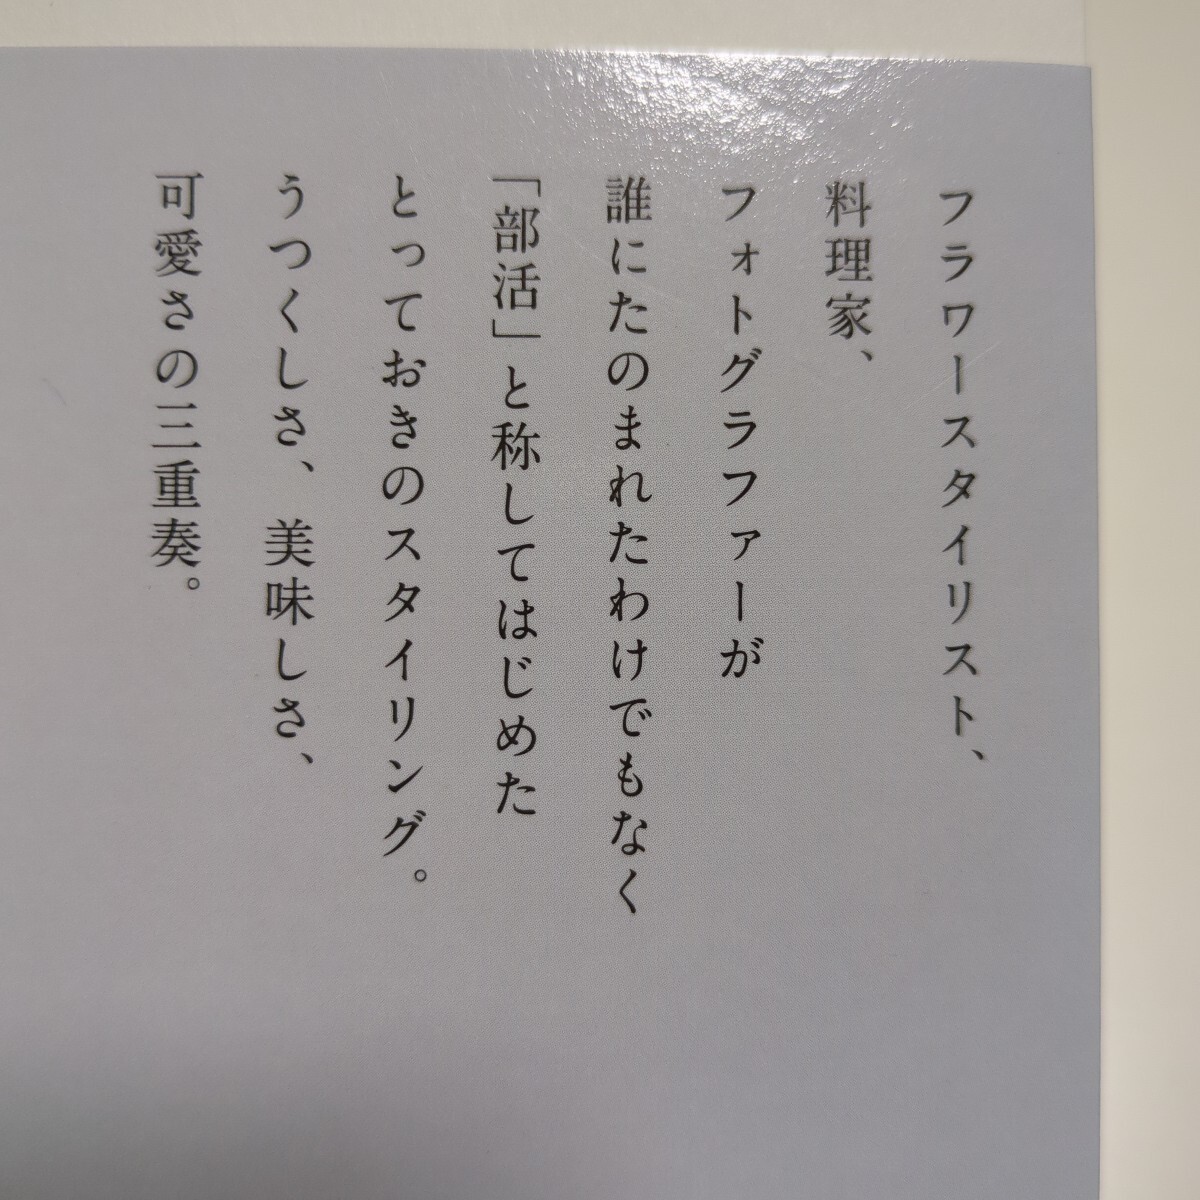 フラワースタイリスト、
料理家、
フォトグラファーが
誰にたのまれたわけでもなく
「部活」と称してはじめた
とっておきのスタイリング。
うつくしさ、美味しさ、
可愛さの三重奏。